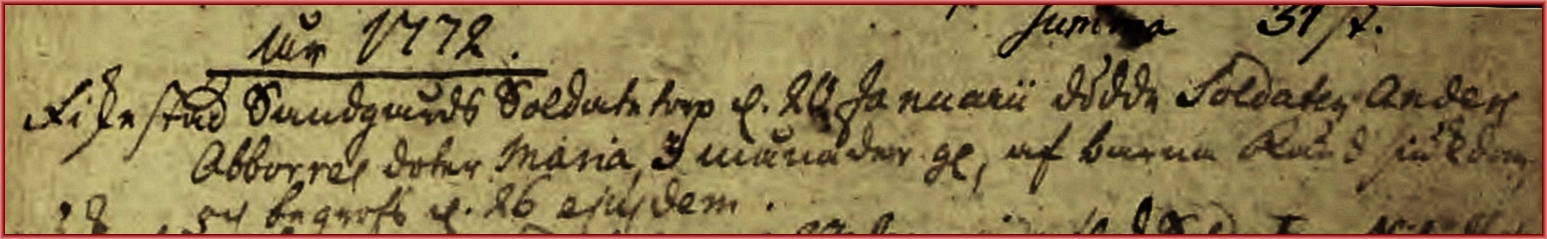 Åhr 1772.
Summa 31 st.
Fikestad Sandgårds Soldatetorp d. 20 Januarii dödde Soldaten Anders
Abborres doter Maria, 3 månader gl, af barna Råud siukdom,
och begrofs d. 26 ejusdem.